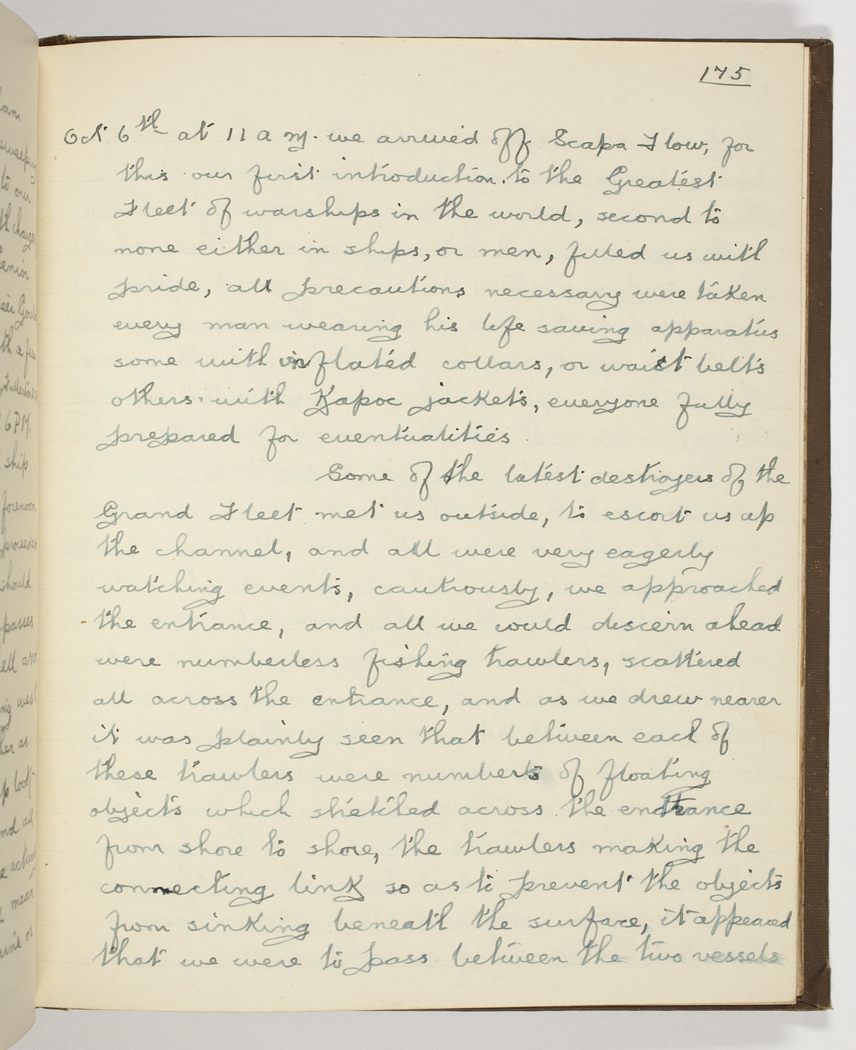 175
Oct 6th at 11 a m. we arrived off Scapa Flow, for
this our first introduction to the Greatest
Fleet of warships in the world, second to
none either in ships, or men, filled us with
pride, all precautions necessary were taken
every man wearing his life saving apparatus
some with inflated collars, or waist belts
others with Kapoc jackets, everyone fully
prepared for eventualities.
Some of the latest destroyers of the
Grand Fleet met us outside, to escort us up
the channel, and all were very eagerly
watching events, cautiously, we approached
the entrance, and all we could discern ahead
were numberless fishing trawlers, scattered
all across the entrance, and as we drew nearer
it was plainly seen that between each of
these trawlers were numbers of floating
objects which stretched across the entrance
from shore to shore, the trawlers making the
connecting link so as to prevent the objects
from sinking beneath the surface, it appeared
that we were to pass between the two vessels